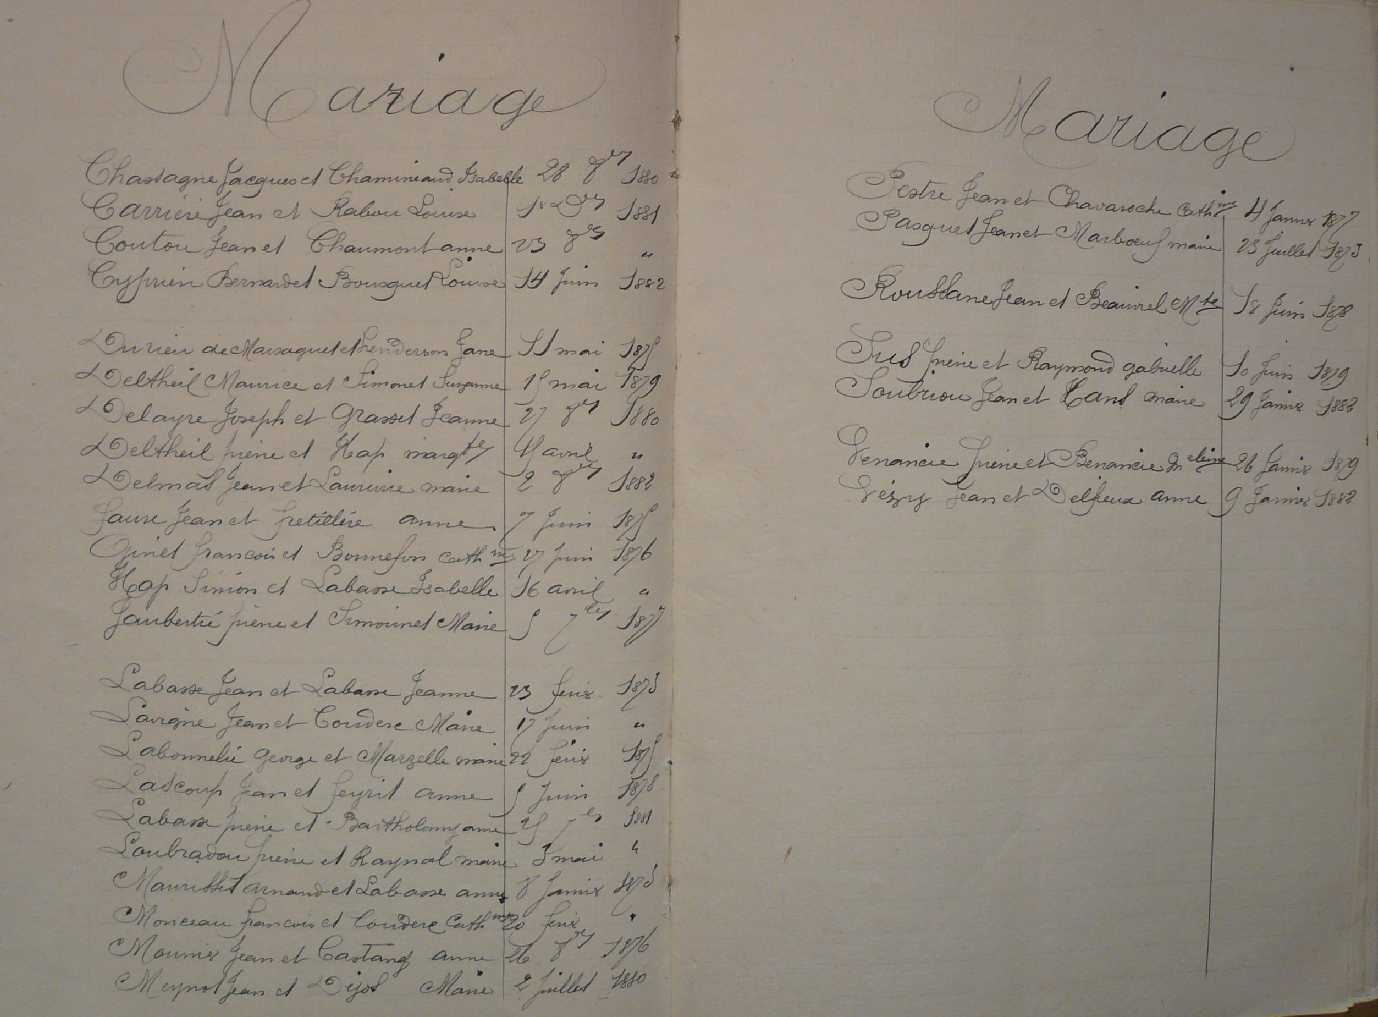 Mariage
Chastagne Jacques et Chaminiaud Isabelle 28 8bre 1880
Carrière Jean et Rabou Louise 18 1881
Coutou Jean et Chaumont anne 23 8bre "
Cyprien Bernard et Bousquet Louise 14 Juin 1882
Durieu de Marsaguet et henderson Jane 11 mai 1875
Deltheil Maurice et Simonet Suzanne 15 mai 1879
Delayre Joseph et Grasset Jeanne 27 8bre 1880
Deltheil pierre et Hap margte 4 avril "
Delmas Jean et Laurière marie 2 8bre 1882
faure Jean et fretillère anne 7 Juin 1875
Ginet françois et Bonnefon Cathine 27 Juin 1876
Hap Siméon et Labasse Isabelle 16 avril "
Jaubertie pierre et Simounet Marie 5 7bre 1877
Labasse Jean et Labasse Jeanne 23 fevr 1873
Lavigne Jean et Couderc Marie 17 Juin "
Labonnelie George et Marzelle marie 22 fevr 1875
Lascoup Jean et feyrit anne 5 Juin 1878
Labasse pierre et Bartholomy anne 25 7bre 1881
Loubradou pierre et Raynal marie 3 mai "
Maurisset arnaud et Labasse anne 8 Janvier 1873
Monceau françois et Couderc Cathine 20 fevr "
Mounier Jean et Castang anne 26 8bre 1876
Meynot Jean et Dijos Marie 2 Juillet 1880
Mariage
Pestre Jean et Chavaroche Cathine 4 Janvier 1877
Pasquet Jean et Marbœuf marie 23 Juillet 1873
Roussane Jean et Beauvrel Mte 18 Juin 1878
Sus pierre et Raymond gabrielle 10 Juin 1879
Soubriou Jean et Cans marie 29 Janvier 1882
Venancie pierre et Benancie Mcleine 26 Janvier 1879
Vézy Jean et Delfieux anne 9 Janvier 1882